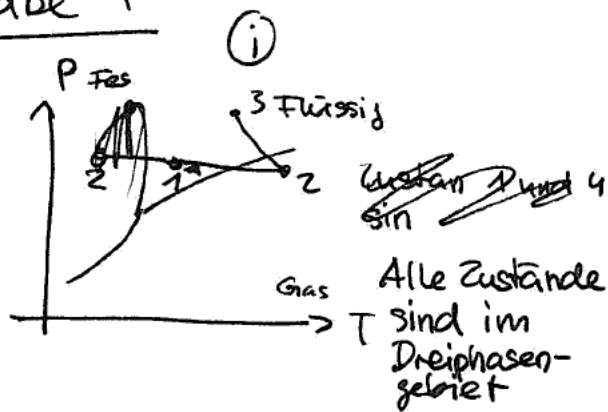 i
P Fes
3 Flüssig
2
1
2
Zustan 1 und 4
sin
Gas
T
Alle Zustände
sind im
Dreiphasen-
gebiet